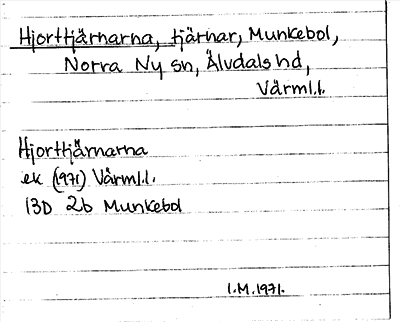 Hjorttjärnarna, tjärnar, Munkebol,
Norra Ny sn, Älvdals hd,
Värml.l.
Hjorttjärnarna
ek (1971) Värml.l.
13D 2b Munkebol
I.M.1971.